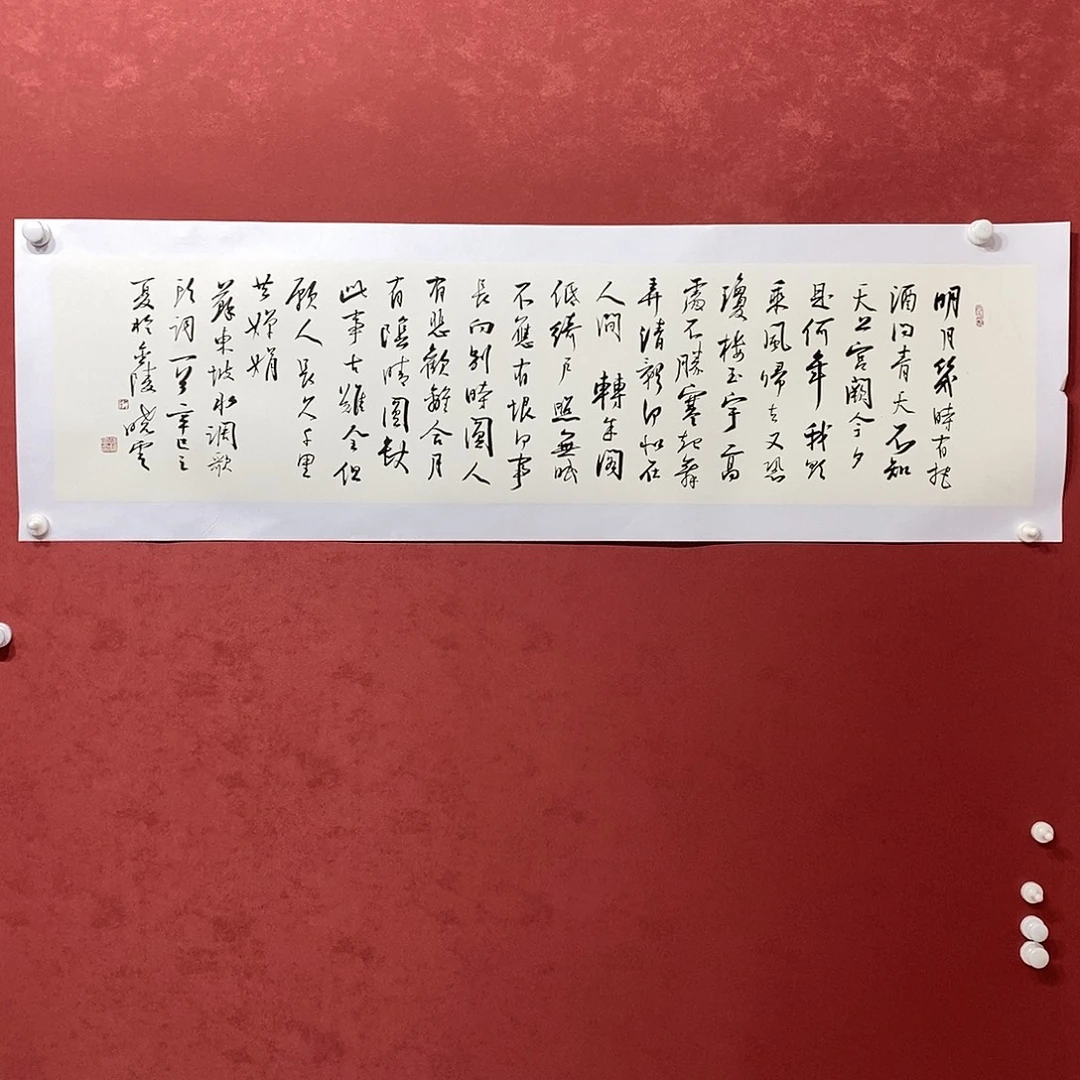 明月幾時有把
酒問青天不知
天上宮闕今夕
是何年我欲
乘風歸去又恐
瓊樓玉宇高
處不勝寒起舞
弄清影何似在
人間 轉朱閣
低綺戶照無眠
不應有恨何事
長向別時圓人
有悲歡離合月
有陰晴圓缺
此事古難全但
願人長久千里
共嬋娟
蘇東坡水調歌
頭詞一首辛巳之
夏於金陵 曉雲